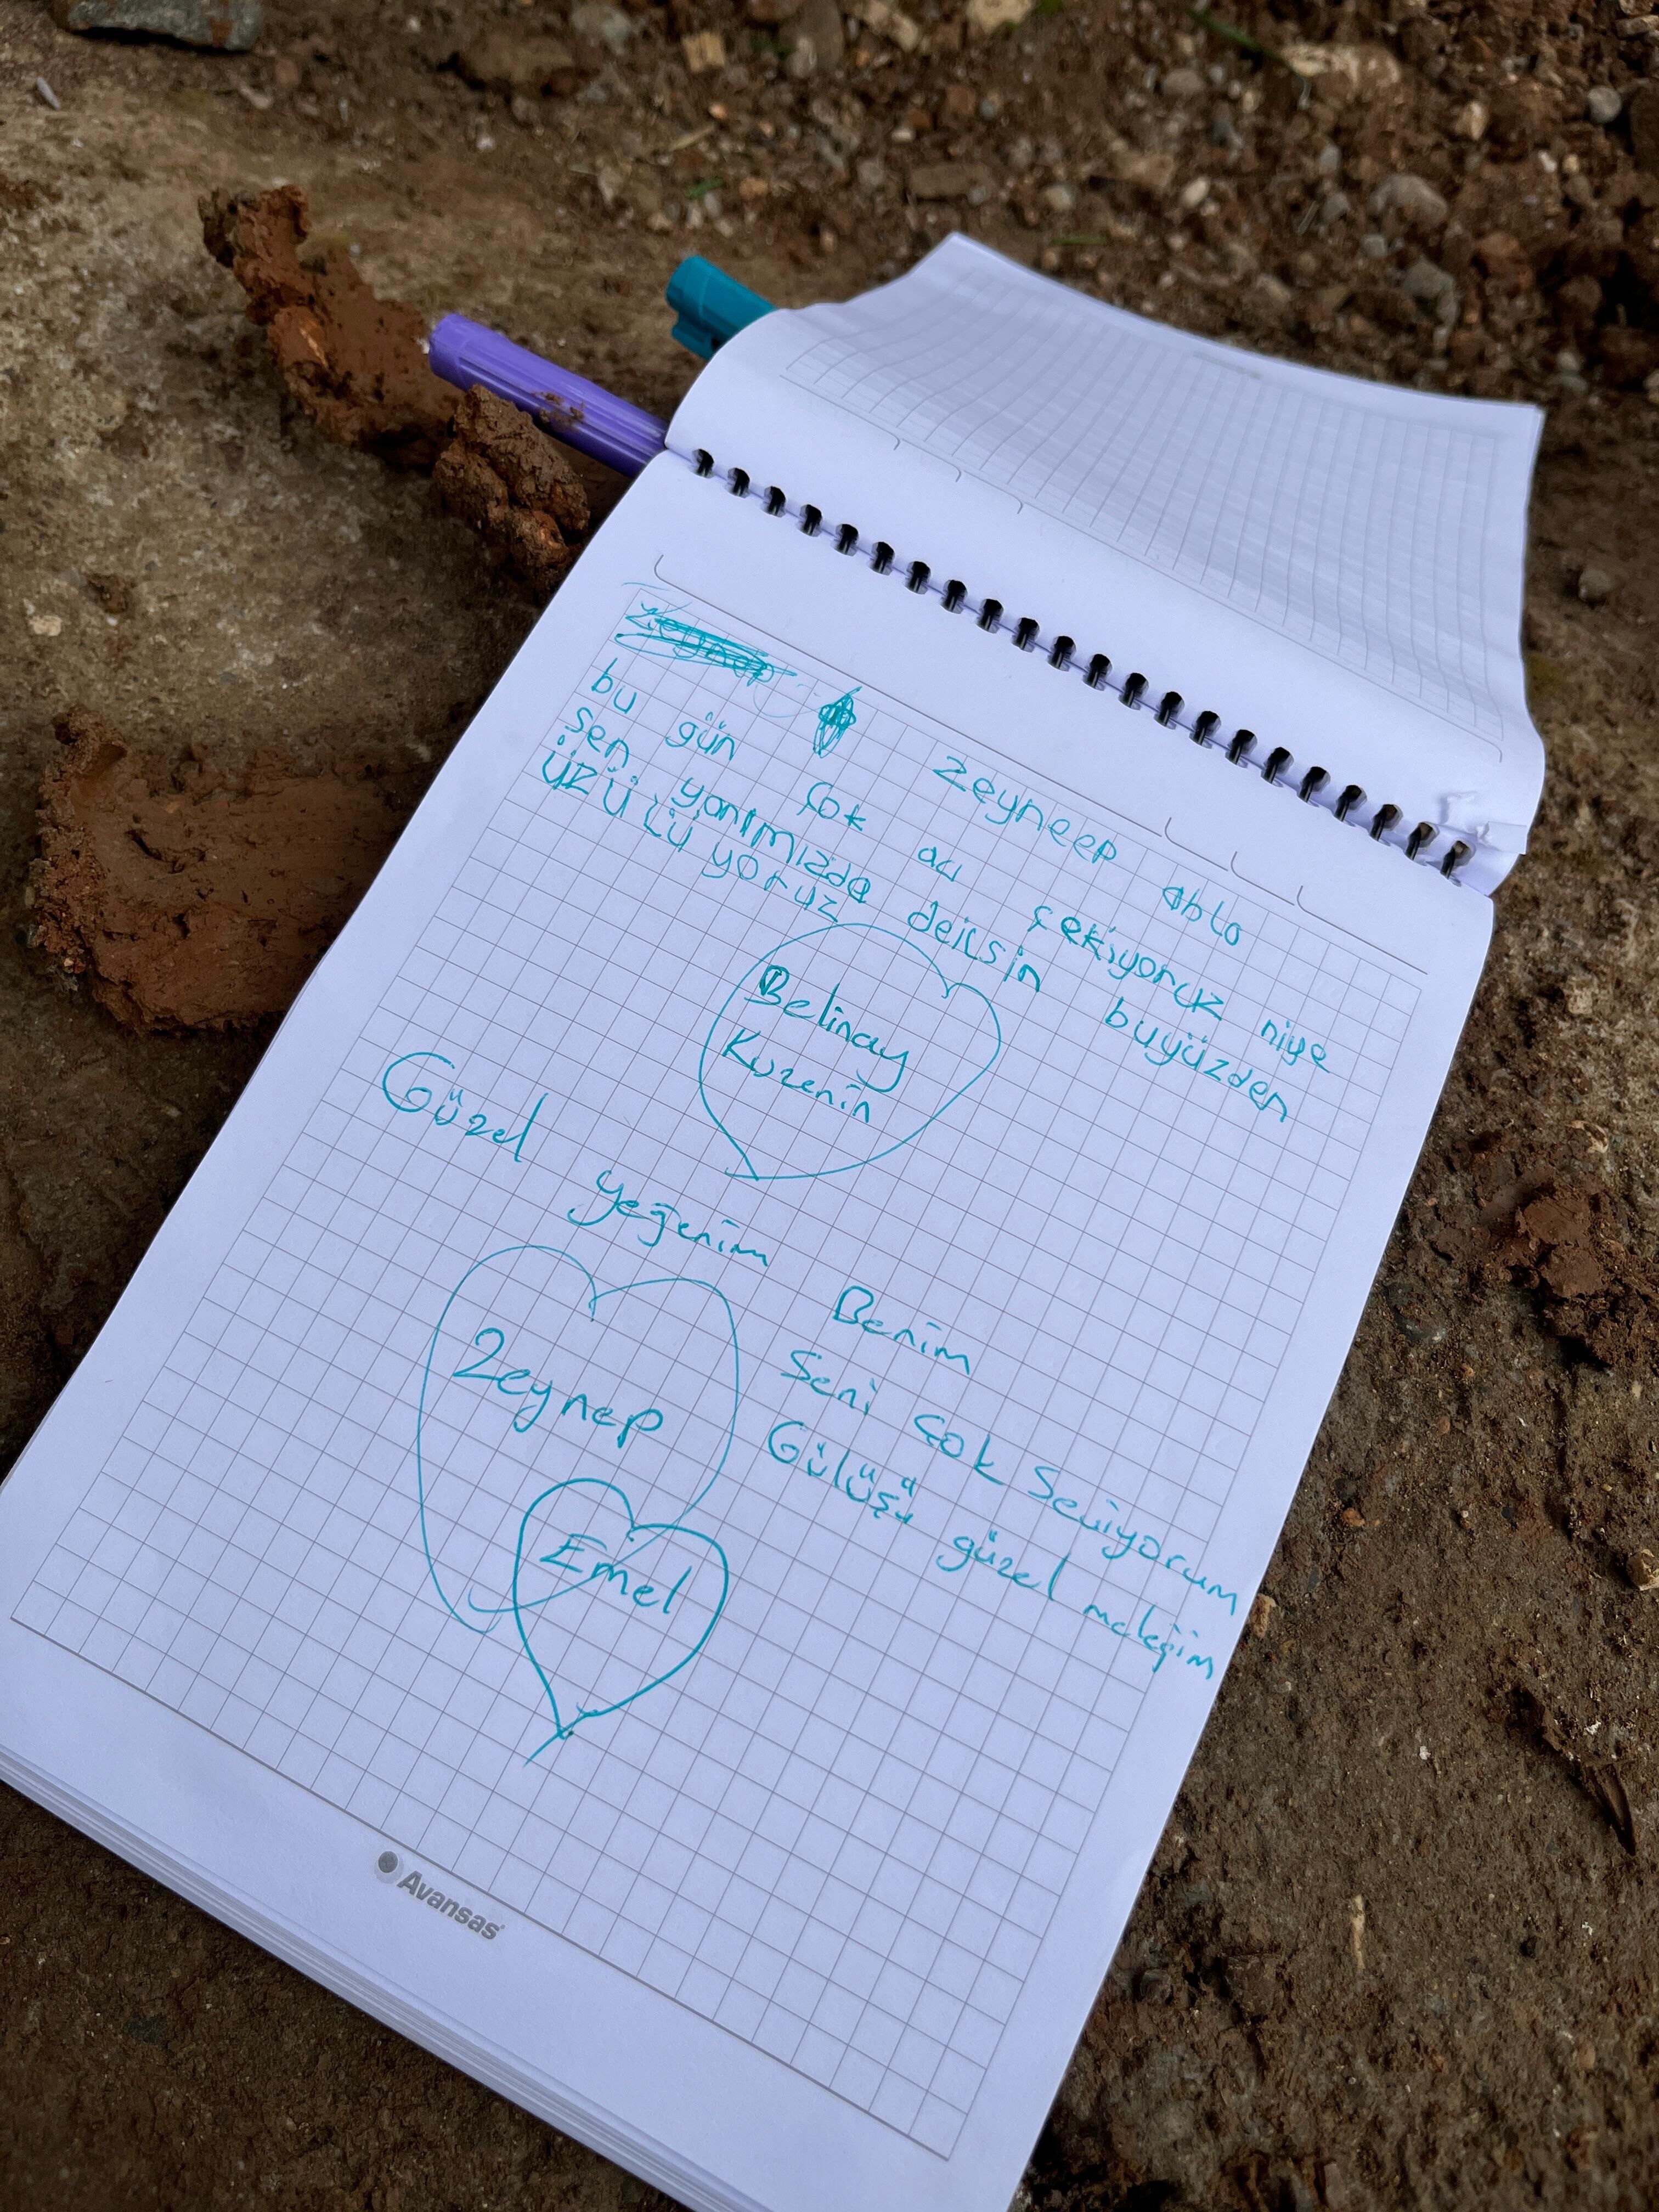 Zeynep
zeyneep ablo
bu gün çok acı çekiyoruz niye
sen yanımızda deilsin buyüzden
üzülüyoruz
Belinay
Kuzenin
Güzel yeğenim Benim
Zeynep
Seni çok Seviyorum
Gülüşü güzel meleğim
Emel
Avansas